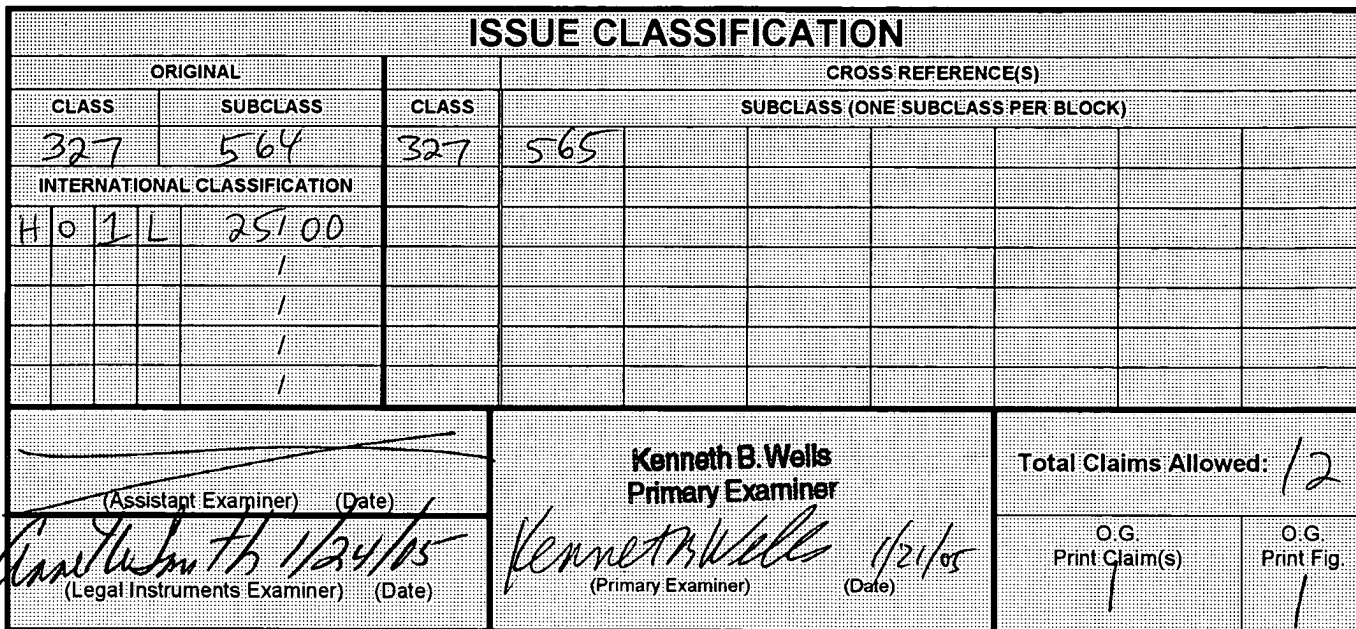 ISSUE CLASSIFICATION
ORIGINAL
CROSS REFERENCE(S)
CLASS SUBCLASS CLASS SUBCLASS (ONE SUBCLASS PER BLOCK)
327 564 327 565
INTERNATIONAL CLASSIFICATION
H 0 1 L 25/00
/
/
/
/
(Assistant Examiner) (Date)
Smith 1/24/05
(Legal Instruments Examiner) (Date)
Kenneth B. Wells
Primary Examiner
Kenneth B Wells 1/21/05
(Primary Examiner) (Date)
Total Claims Allowed: 12
O.G.
Print Claim(s)
1
O.G.
Print Fig.
1